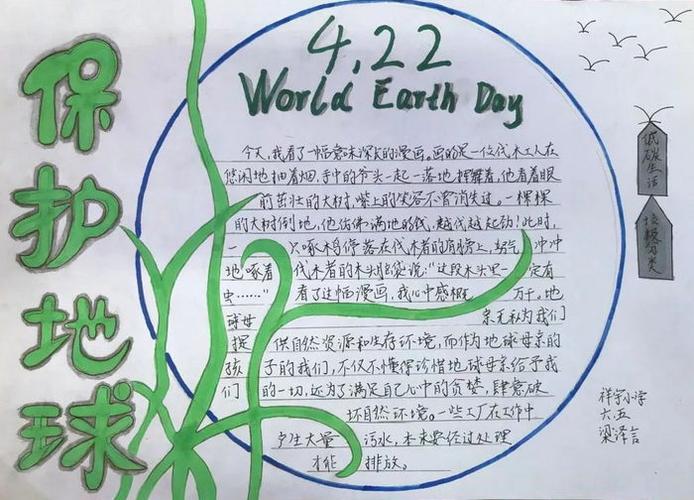 保护地球
4.22
World Earth Day
今天，我看了一幅意味深长的漫画。画的是一位伐木工人在
悠闲地抽着烟，手中的斧头一起一落地挥舞着，他看着眼
前茁壮的大树，嘴上的笑容不曾消失过。一棵棵
的大树倒地，他仿佛满地的钱，越伐越起劲！此时，
一只啄木鸟停落在伐木者的肩膀上，怒气冲冲
地啄着伐木者的木头脑袋说：“这段木头里一定有
虫……”看了这幅漫画，我心中感概万千。地
球母亲无私为我们
提供自然资源和生存环境，而作为地球母亲的
孩子的我们，不仅不懂得珍惜地球母亲给予我
们的一切，还为了满足自己心中的贪婪，肆意破
坏自然环境。一些工厂在工作中
产生大量污水，本来要经过处理
才能排放。
低碳生活
垃圾分类
祥宇小学
六五
梁泽言